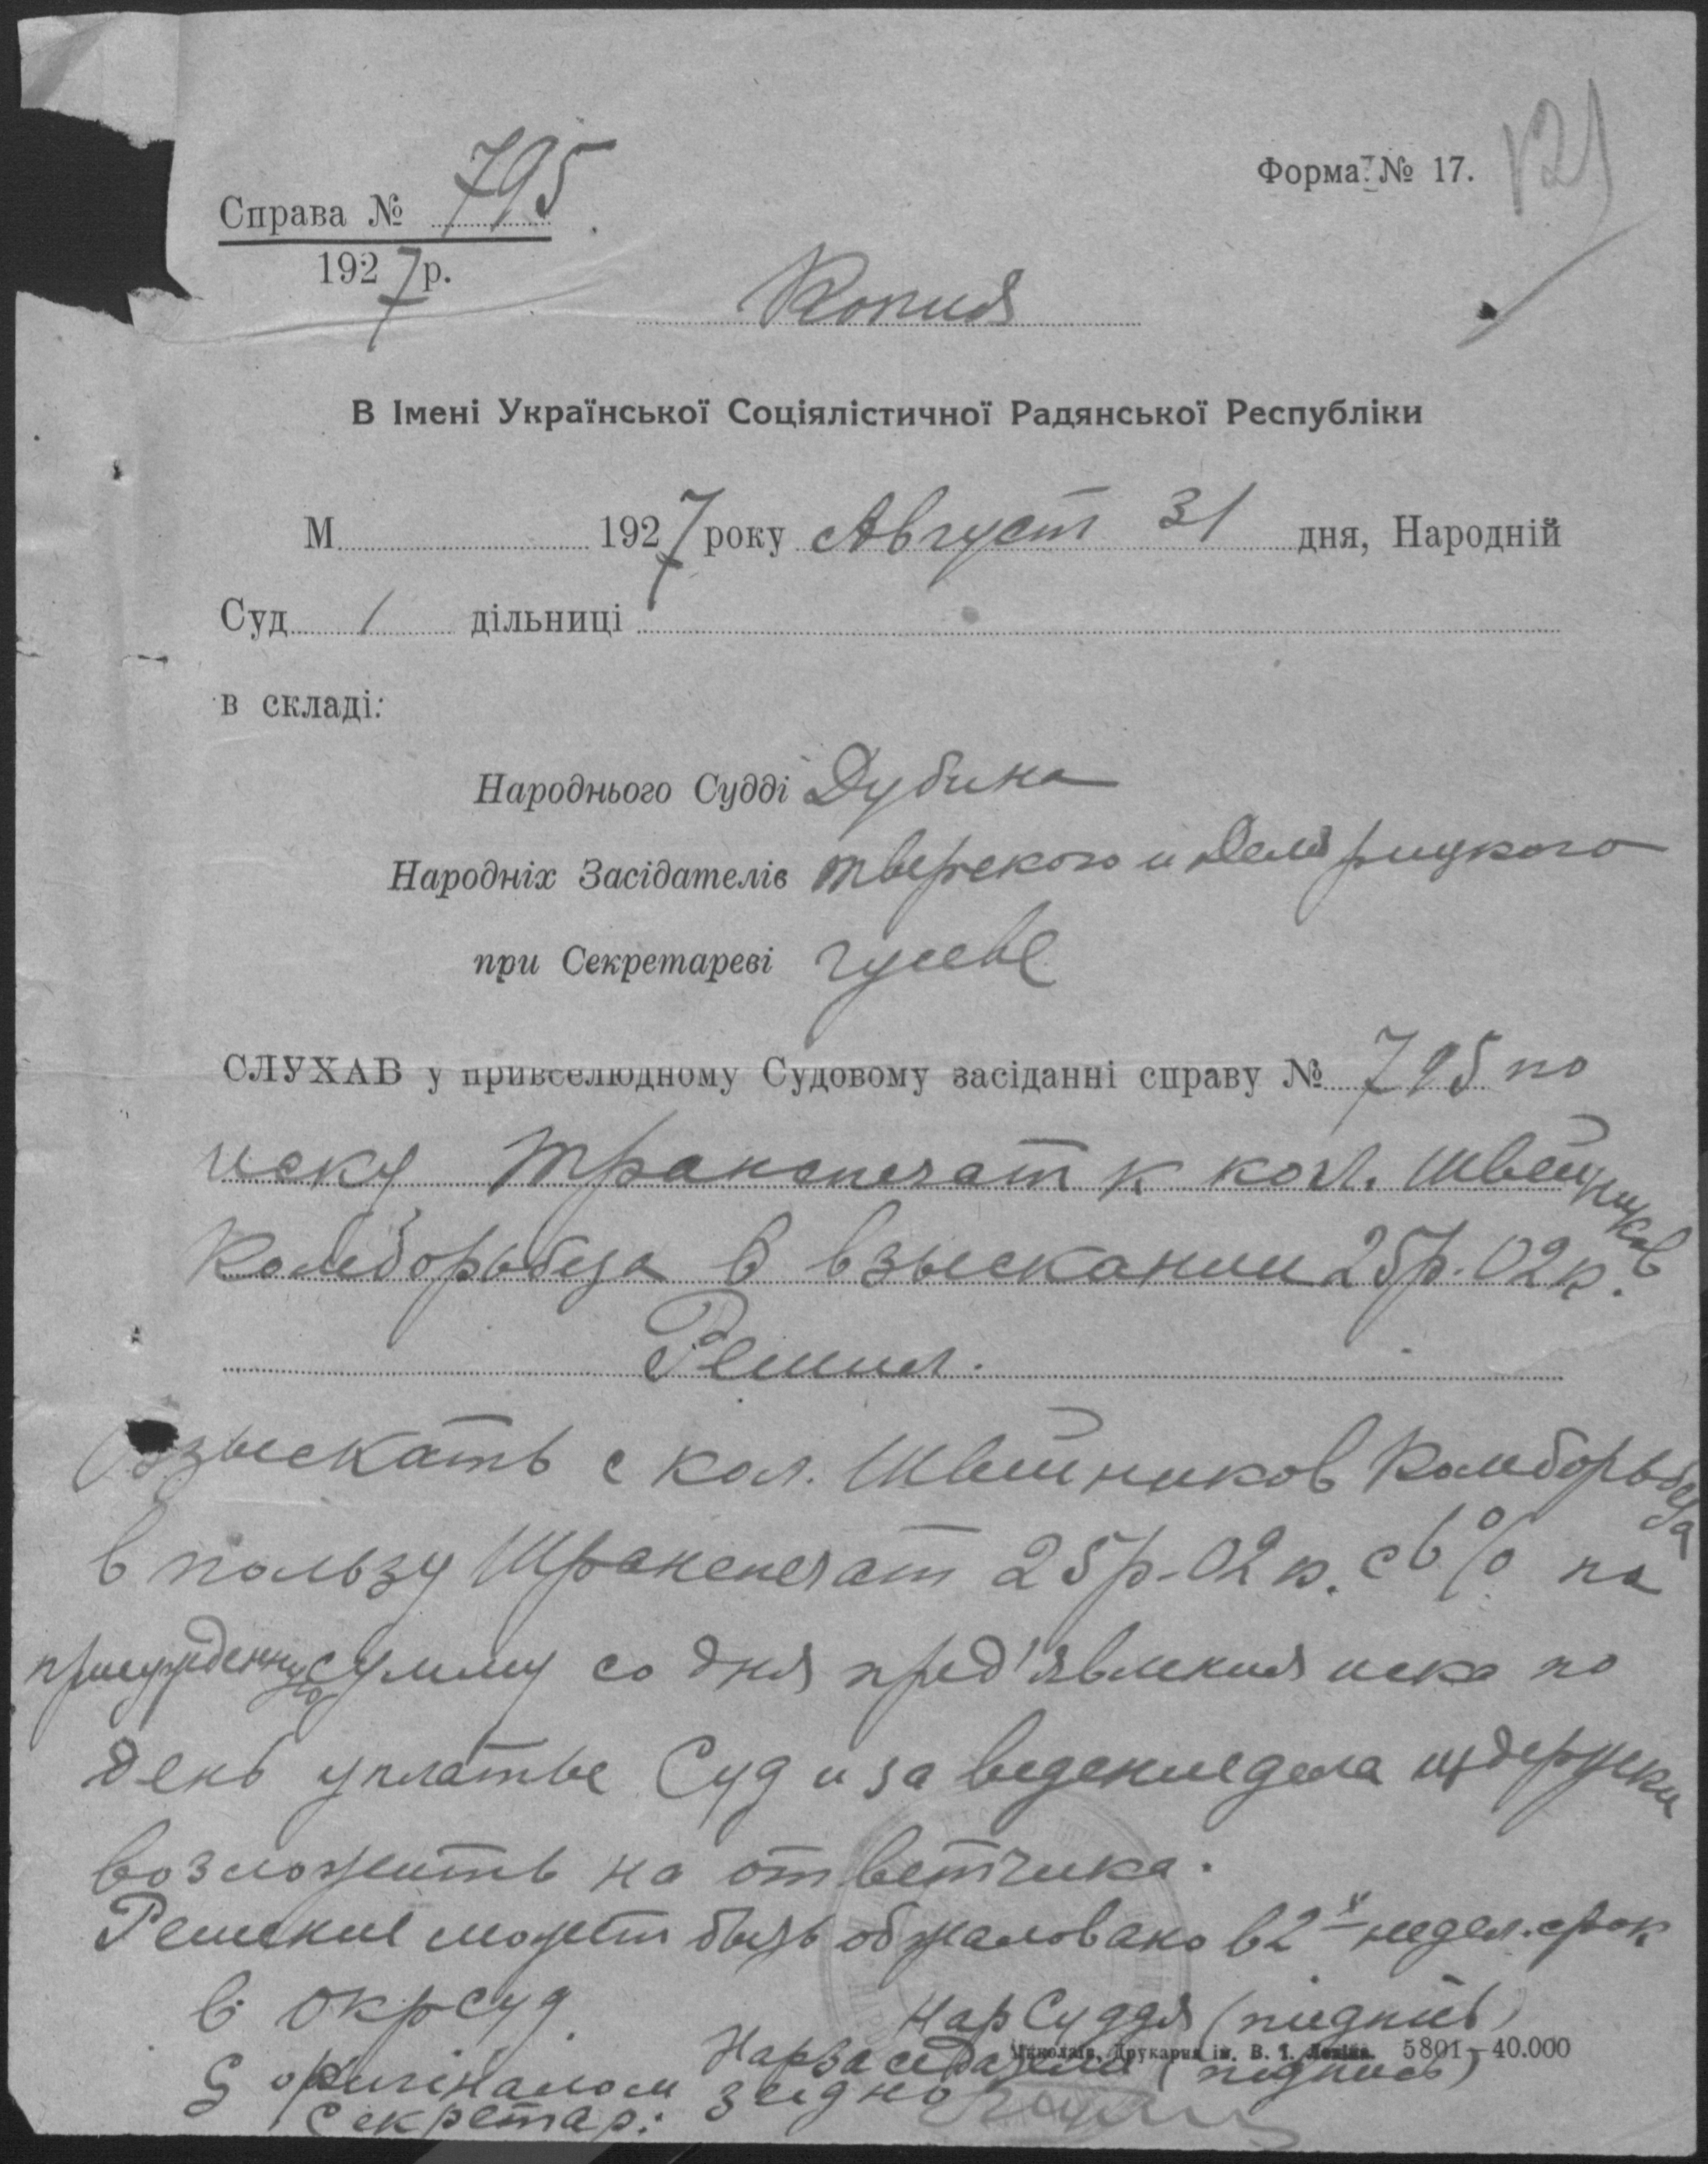 121
Форма № 17.
Справа № 795
1927 р.
Копия
В Імені Української Соціялістичної Радянської Республіки
М. 1927 року Август 31 дня, Народній
Суд 1 дільниці
в складі:
Народнього Судді Дубина
Народніх Засідателів Тверского и
при Секретареві Гусеве
СЛУХАВ у привселюдному Судовому засіданні справу № 795 по
иску Транспечат к кол. Швейников
Комборьбеза в взыскании 25р. 02к.
Решил.
Взыскать с кол. Швейников Комборьбеза
в пользу Транспечат 25р-02к. с 6% на
присужденную сумму со дня пред'явления иска по
день уплаты Суд и за ведение дела издержки
возложить на ответчика.
Решение может быть обжаловано в 2х недел. срок
в окрсуд.
НарСуддя (підпись)
Нарзаседатели (підпись)
Миколаїв, Друкарня ім. В. І. Леніна. 5801—40.000
З оригіналом згідно
Секретар: